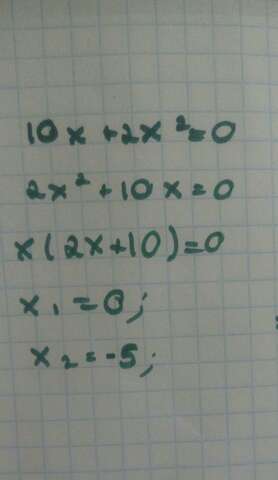 10x+2x²=0
2x²+10x=0
x(2x+10)=0
x₁=0;
x₂=-5;